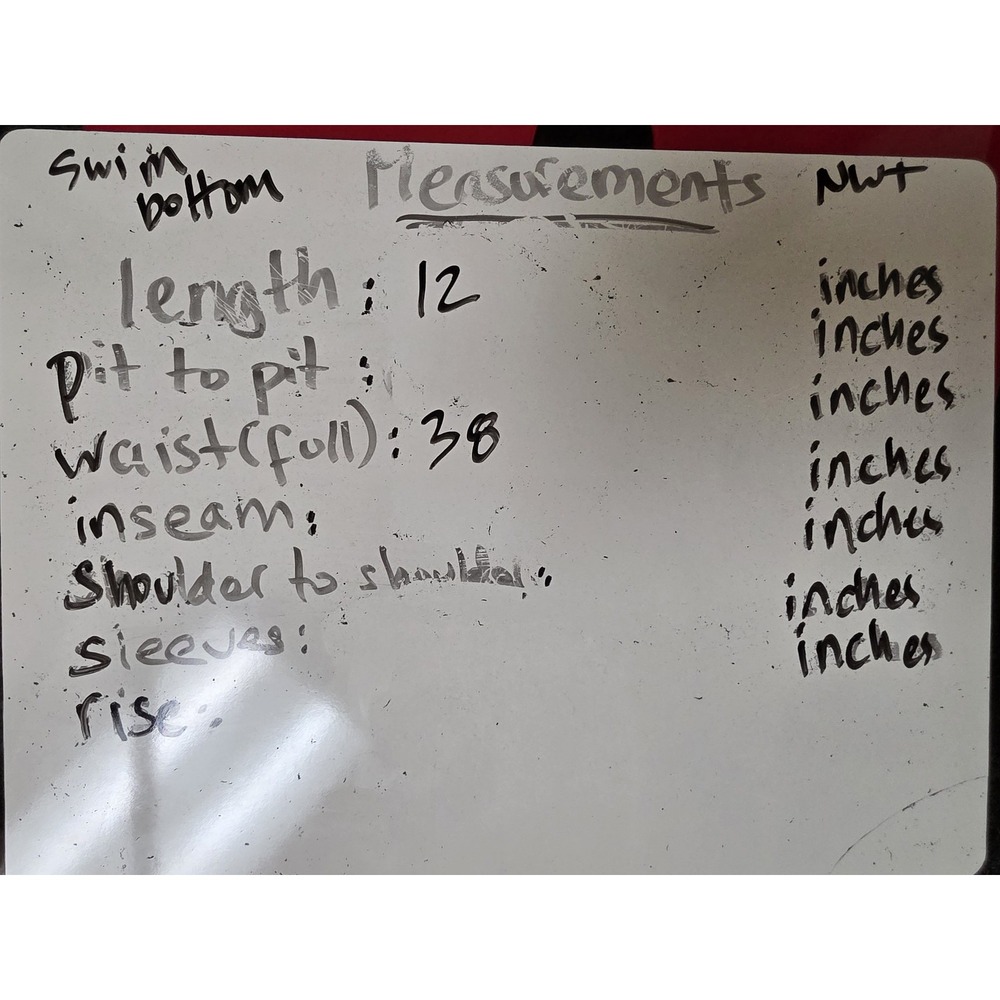 swim bottom Measurements NWT
length: 12 inches
pit to pit: inches
waist(full): 38 inches
inseam: inches
Shoulder to shoulder: inches
sleeves: inches
rise: inches